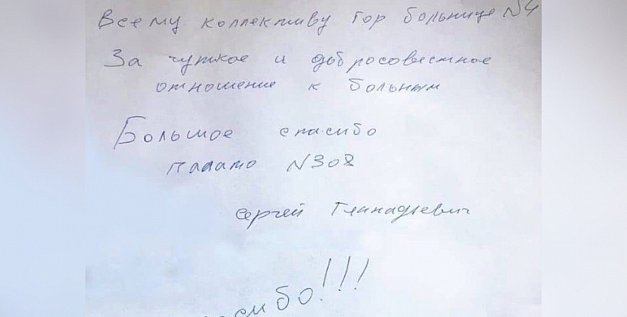 Всему коллективу гор больнице N4
За чуткое и добросовестное
отношение к больным
Большое спасибо
палата N308
Сергей Геннадьевич